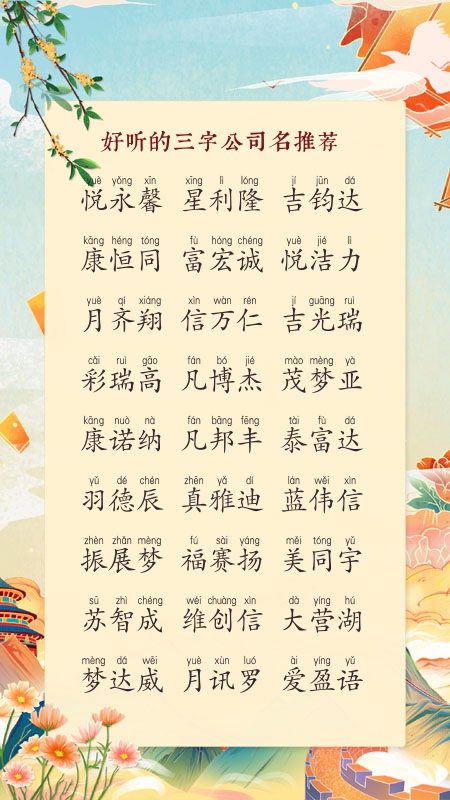 好听的三字公司名推荐
yuè yǒng xīn xīng lì lóng jí jūn dá
悦永馨 星利隆 吉钧达
kāng héng tóng fù hóng chéng yuè jié lì
康恒同 富宏诚 悦洁力
yuè qí xiáng xìn wàn rén jí guāng ruì
月齐翔 信万仁 吉光瑞
cǎi ruì gāo fán bó jié mào mèng yà
彩瑞高 凡博杰 茂梦亚
kāng nuò nà fán bāng fēng tài fù dá
康诺纳 凡邦丰 泰富达
yǔ dé chén zhēn yǎ dí lán wěi xìn
羽德辰 真雅迪 蓝伟信
zhèn zhǎn mèng fú sài yáng měi tóng yǔ
振展梦 福赛扬 美同宇
sū zhì chéng wéi chuàng xìn dà yíng hú
苏智成 维创信 大营湖
mèng dá wēi yuè xùn luó ài yíng yǔ
梦达威 月讯罗 爱盈语